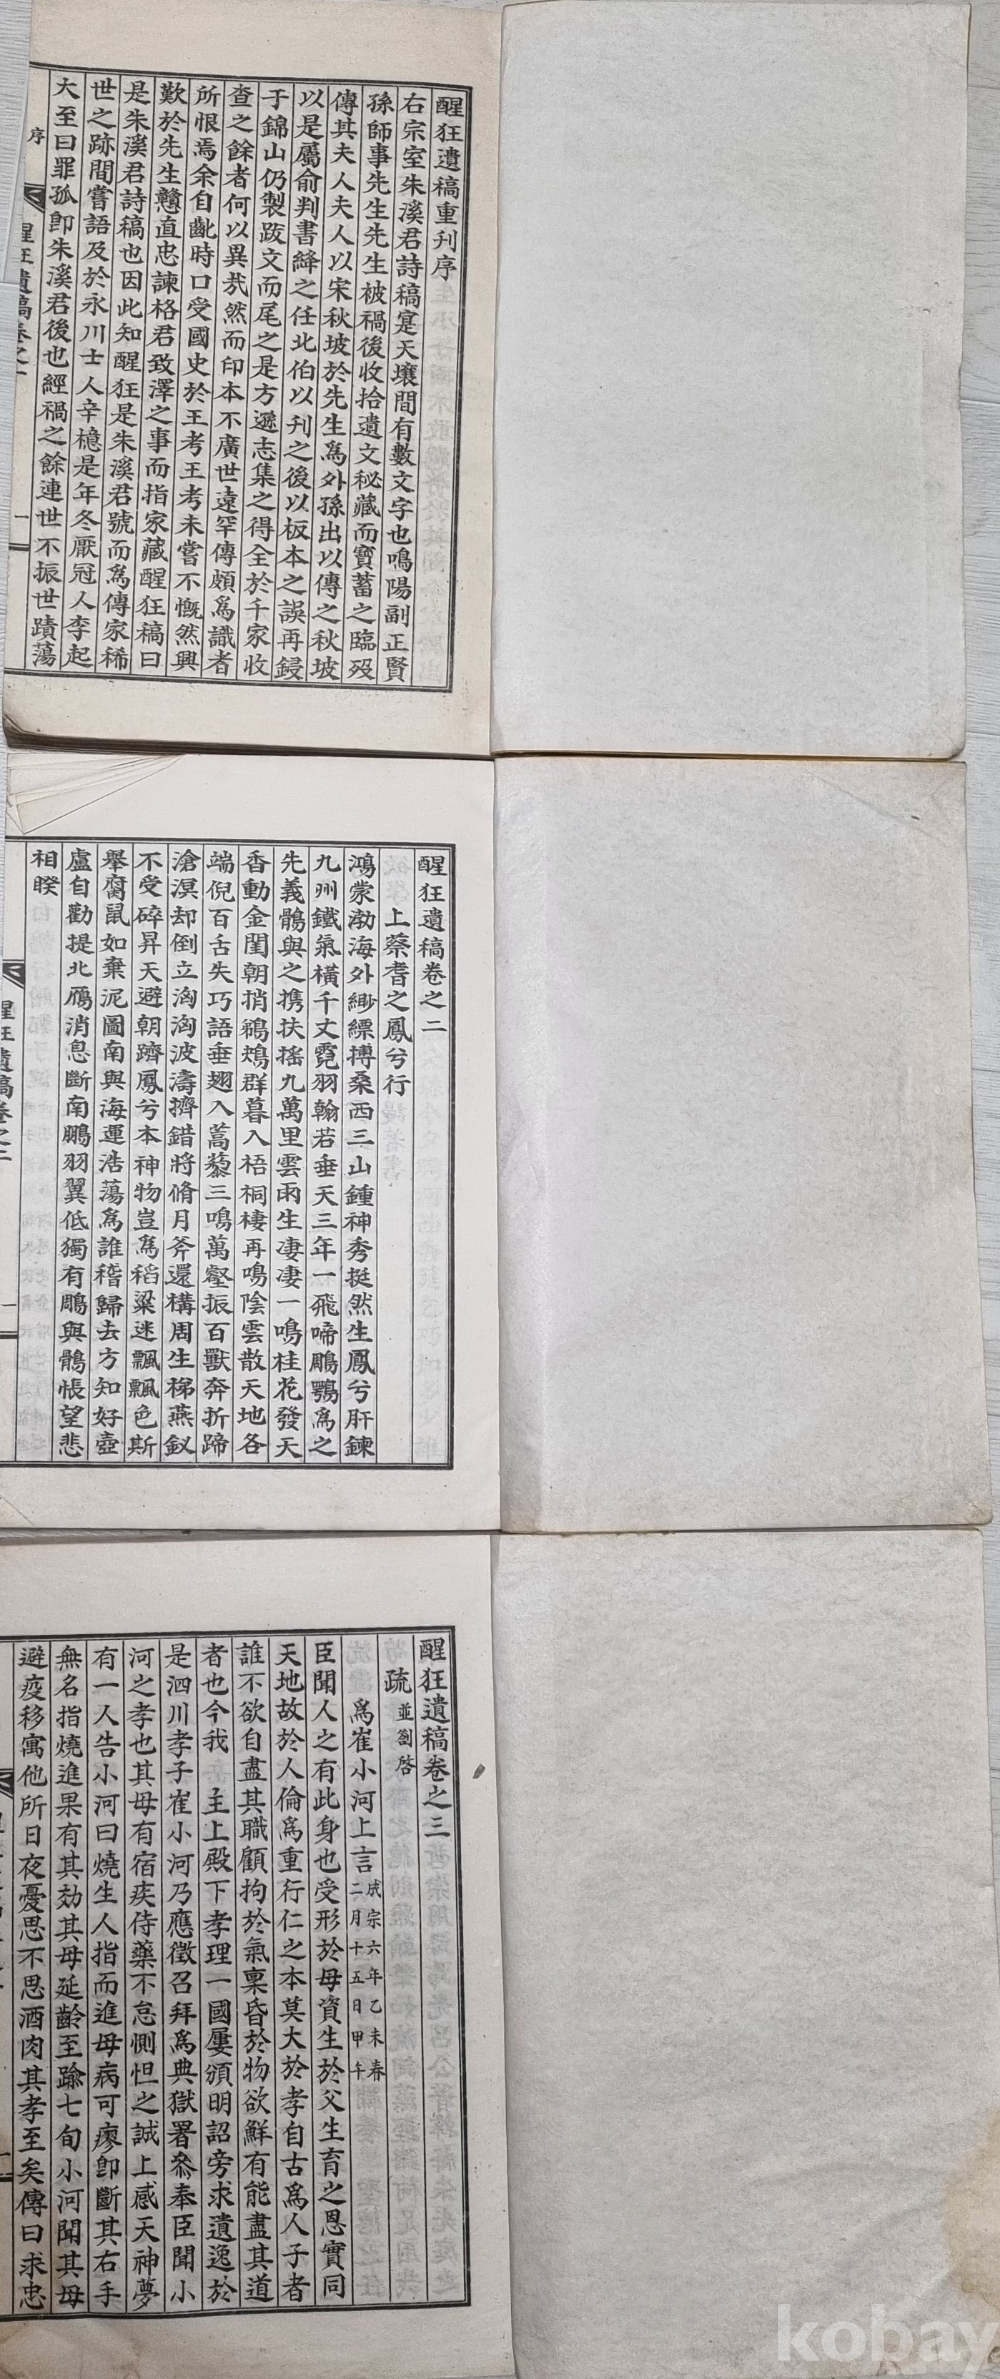 醒狂遺稿重刊序
右宗室朱溪君詩稿寔天壤間有數文字也鳴陽副正賢
孫師事先生先生被禍後收拾遺文秘藏而寶蓄之臨歿
傳其夫人夫人以宋秋坡於先生爲外孫出以傳之秋坡
以是屬俞判書絳之任北伯以刊之後以板本之誤再鋟
于錦山仍製跋文而尾之是方遜志集之得全於千家收
查之餘者何以異㢤然而印本不廣世遠罕傳頗爲識者
所恨焉余自齔時口受國史於王考王考未嘗不慨然興
歎於先生戇直忠諫格君致澤之事而指家藏醒狂稿曰
是朱溪君詩稿也因此知醒狂是朱溪君號而爲傳家稀
世之跡間嘗語及於永川士人辛檍是年冬厭冠人李起
大至曰罪孤卽朱溪君後也經禍之餘連世不振世蹟蕩
序
醒狂遺稿卷之一
一
醒狂遺稿卷之二
上蔡耆之鳳兮行
鴻蒙渤海外緲縹搏桑西三山鍾神秀挺然生鳳兮肝鍊
九州鐵氣橫千丈霓羽翰若垂天三年一飛啼鵬鶚爲之
先義鶻與之携扶搖九萬里雲雨生凄凄一鳴桂花發天
香動金闺朝捎鵷鴂群暮入梧桐棲再鳴陰雲散天地各
端倪百舌失巧語垂翅入蒿藜三鳴萬壑振百獸奔折蹄
滄溟却倒立洶洶波濤擠錯將脩月斧還構周生梯燕釵
不受碎昇天避朝躋鳳兮本神物豈爲稻粱迷飄飄色斯
舉腐鼠如棄泥圖南與海運浩蕩爲誰稽歸去方知好壺
盧自勸提北鴈消息斷南鵬羽翼低獨有鵰與鶻悵望悲
相睽
醒狂遺稿卷之二
一
醒狂遺稿卷之三
疏 並劄啓
爲崔小河上言 成宗六年乙未春二月十五日甲午
臣聞人之有此身也受形於母資生於父生育之恩實同
天地故於人倫爲重行仁之本莫大於孝自古爲人子者
誰不欲自盡其職顧拘於氣稟昏於物欲鮮有能盡其道
者也今我 主上殿下孝理一國屢頒明詔旁求遺逸於
是泗川孝子崔小河乃應徵召拜爲典獄署參奉臣聞小
河之孝也其母有宿疾侍藥不怠惻怛之誠上感天神夢
有一人告小河曰燒生人指而進母病可瘳卽斷其右手
無名指燒進果有其効其母延齡至踰七旬小河聞其母
避疫移寓他所日夜憂思不思酒肉其孝至矣傳曰求忠
kobay